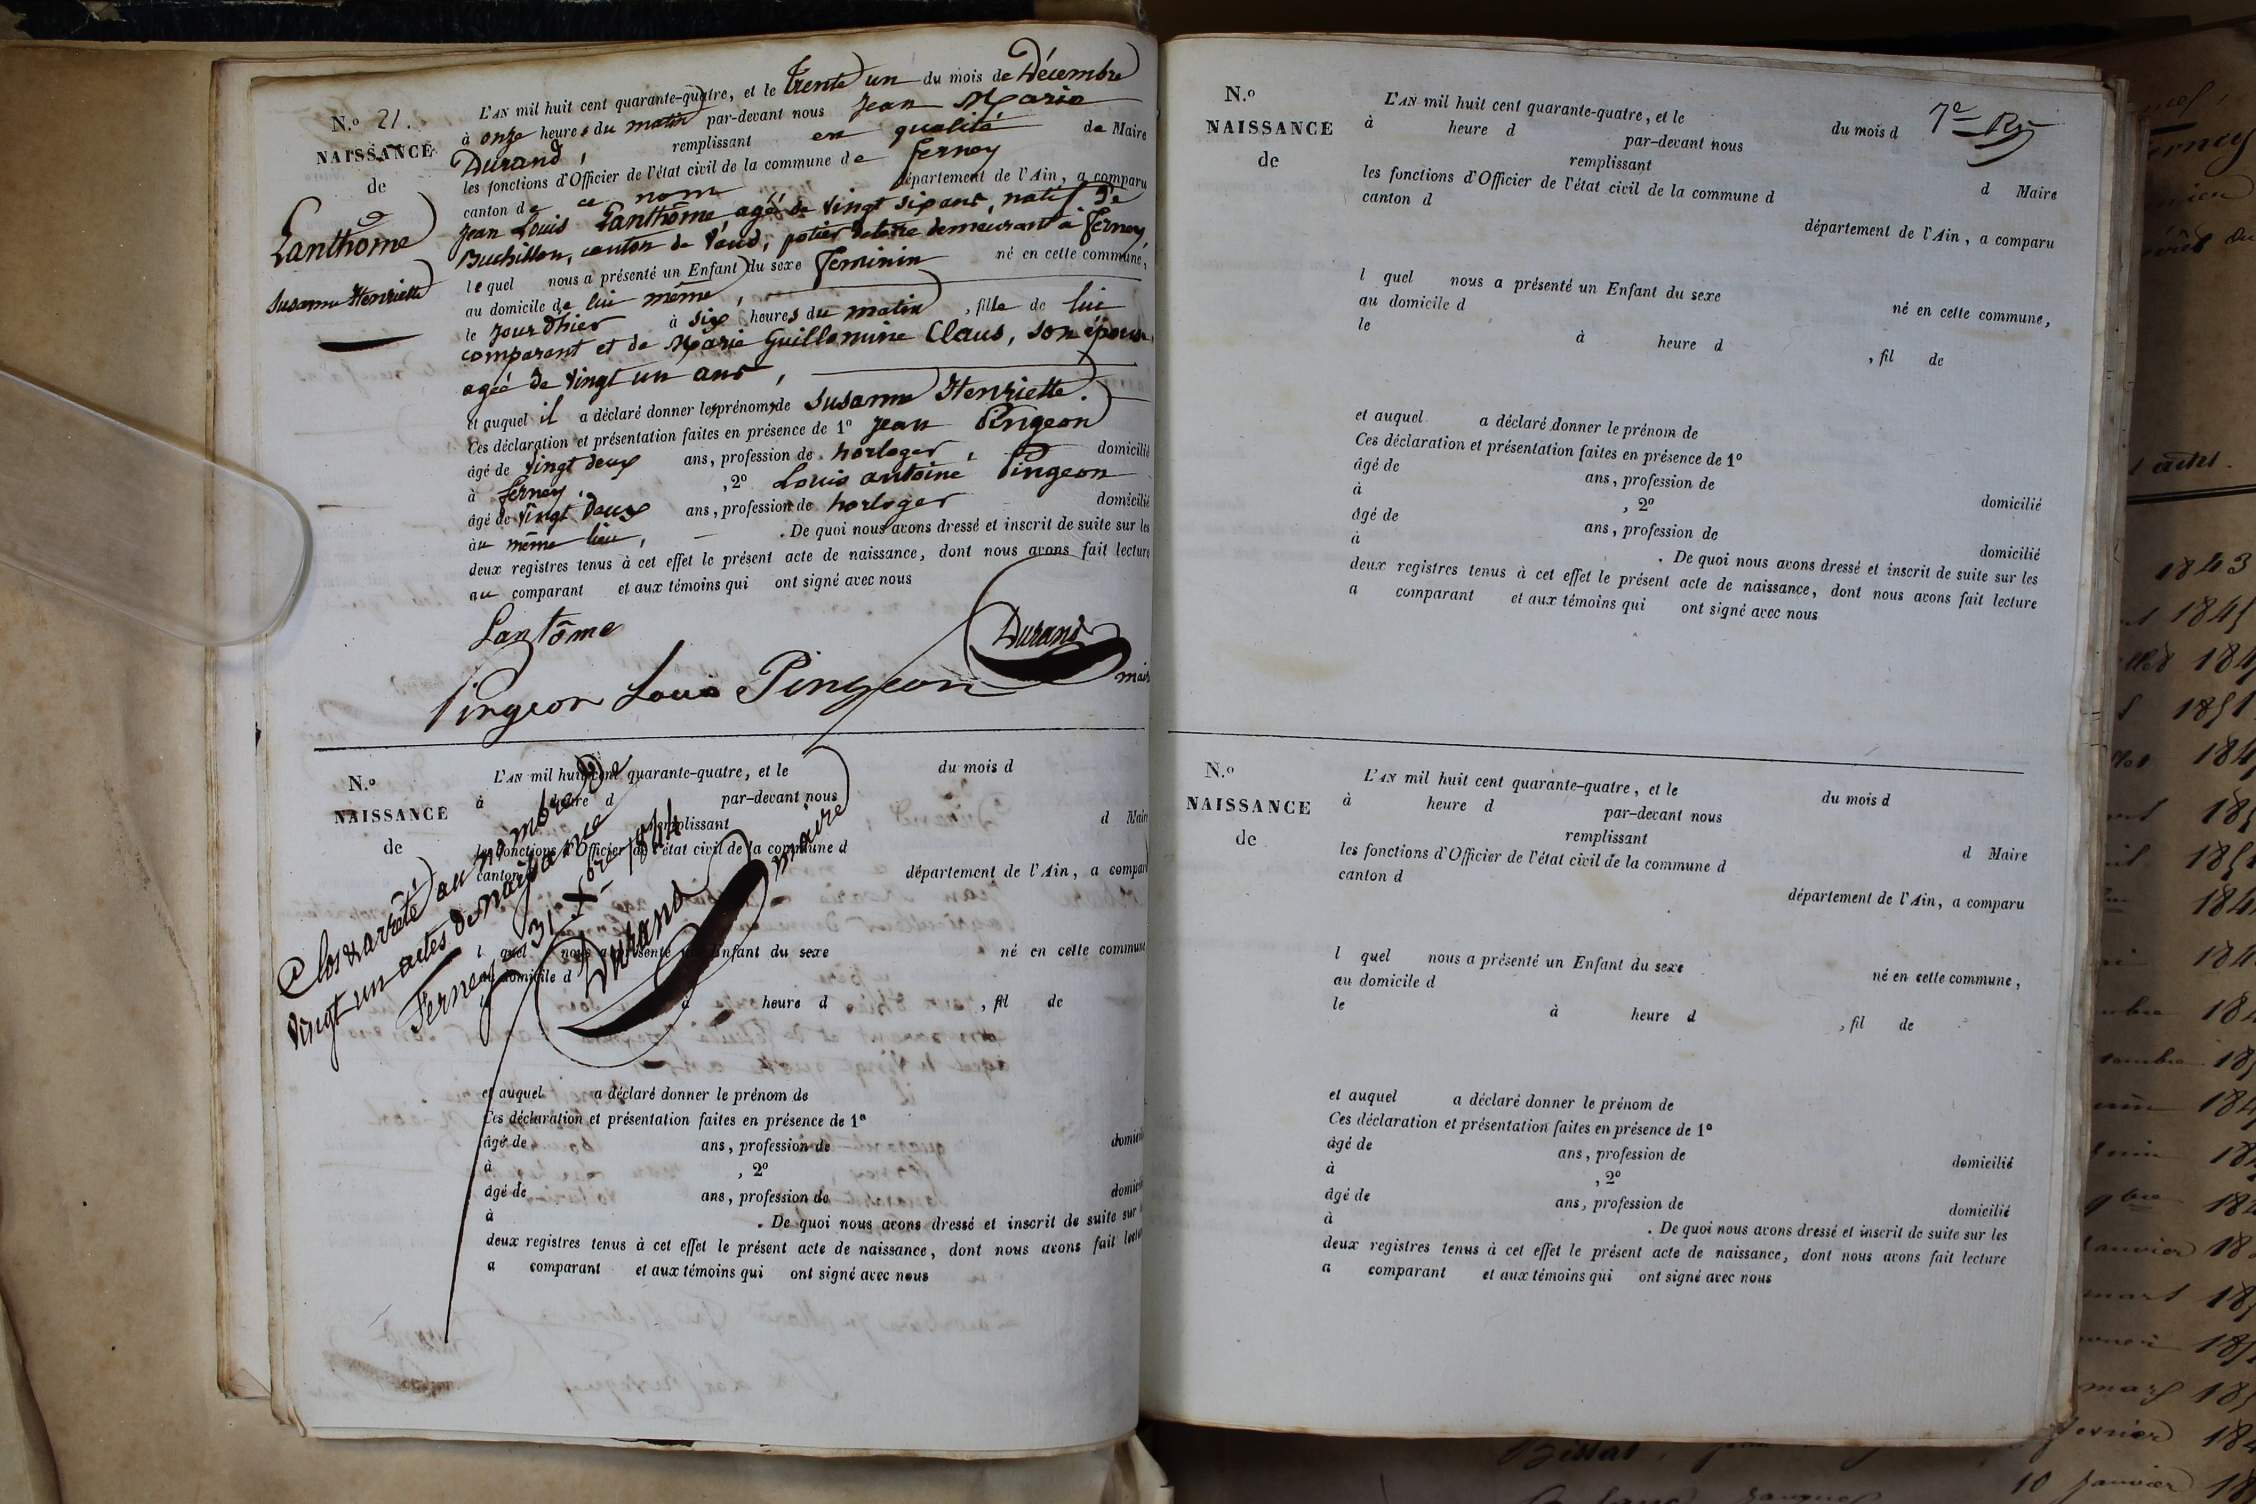 N.º 21.
NAISSANCE
de
Lanthôme
Susanne Henriette
L'AN mil huit cent quarante-quatre, et le trente un du mois de Décembre
à onze heures du matin par-devant nous Jean Marie
Durand, remplissant en qualité de Maire
les fonctions d'Officier de l'état civil de la commune de Ferney
canton de ce nom département de l'Ain, a comparu
Jean Louis Lanthôme, agé de vingt six ans, natif de
Buchillon, canton de Vaud, potier de terre demeurant à Ferney,
lequel nous a présenté un Enfant du sexe feminin né en cette commune,
au domicile de lui même,
le jour d'hier à six heures du matin, fille de lui
comparent et de Marie Guillemine Claus, son épouse,
agée de vingt un ans,
et auquel il a déclaré donner les prénoms de Susanne Henriette.
Ces déclaration et présentation faites en présence de 1º Jean Pingeon
âgé de vingt deux ans, profession de horloger, domicilié
à Ferney, 2º Louis antoine Pingeon
âgé de vingt deux ans, profession de horloger domicilié
au même lieu, . De quoi nous avons dressé et inscrit de suite sur les
deux registres tenus à cet effet le présent acte de naissance, dont nous avons fait lecture
au comparant et aux témoins qui ont signé avec nous
Lantôme
Durand
Pingeon Louis Pingeon
maire
N.º
NAISSANCE
de
L'AN mil huit cent quarante-quatre, et le du mois d
à heure d par-devant nous
remplissant d Maire
les fonctions d'Officier de l'état civil de la commune d
canton d département de l'Ain, a comparu
l quel nous a présenté un Enfant du sexe né en cette commune
au domicile d
le à heure d , fil de
et auquel a déclaré donner le prénom de
Ces déclaration et présentation faites en présence de 1º
âgé de ans, profession de domicilié
à , 2º
âgé de ans, profession de domicilié
à . De quoi nous avons dressé et inscrit de suite sur
deux registres tenus à cet effet le présent acte de naissance, dont nous avons fait lecture
a comparant et aux témoins qui ont signé avec nous
Clos & arrêté au nombre de
vingt-un actes de naissance
Ferney 31 Xbre 1844
Durand maire
7e
N.º
NAISSANCE
de
L'AN mil huit cent quarante-quatre, et le du mois d
à heure d par-devant nous
remplissant d Maire
les fonctions d'Officier de l'état civil de la commune d
canton d département de l'Ain, a comparu
l quel nous a présenté un Enfant du sexe né en cette commune,
au domicile d
le à heure d , fil de
et auquel a déclaré donner le prénom de
Ces déclaration et présentation faites en présence de 1º
âgé de ans, profession de domicilié
à , 2º
âgé de ans, profession de domicilié
à . De quoi nous avons dressé et inscrit de suite sur les
deux registres tenus à cet effet le présent acte de naissance, dont nous avons fait lecture
a comparant et aux témoins qui ont signé avec nous
N.º
NAISSANCE
de
L'AN mil huit cent quarante-quatre, et le du mois d
à heure d par-devant nous
remplissant d Maire
les fonctions d'Officier de l'état civil de la commune d
canton d département de l'Ain, a comparu
l quel nous a présenté un Enfant du sexe né en cette commune,
au domicile d
le à heure d , fil de
et auquel a déclaré donner le prénom de
Ces déclaration et présentation faites en présence de 1º
âgé de ans, profession de domicilié
à , 2º
âgé de ans, profession de domicilié
à . De quoi nous avons dressé et inscrit de suite sur les
deux registres tenus à cet effet le présent acte de naissance, dont nous avons fait lecture
a comparant et aux témoins qui ont signé avec nous
1843
10 Janvier